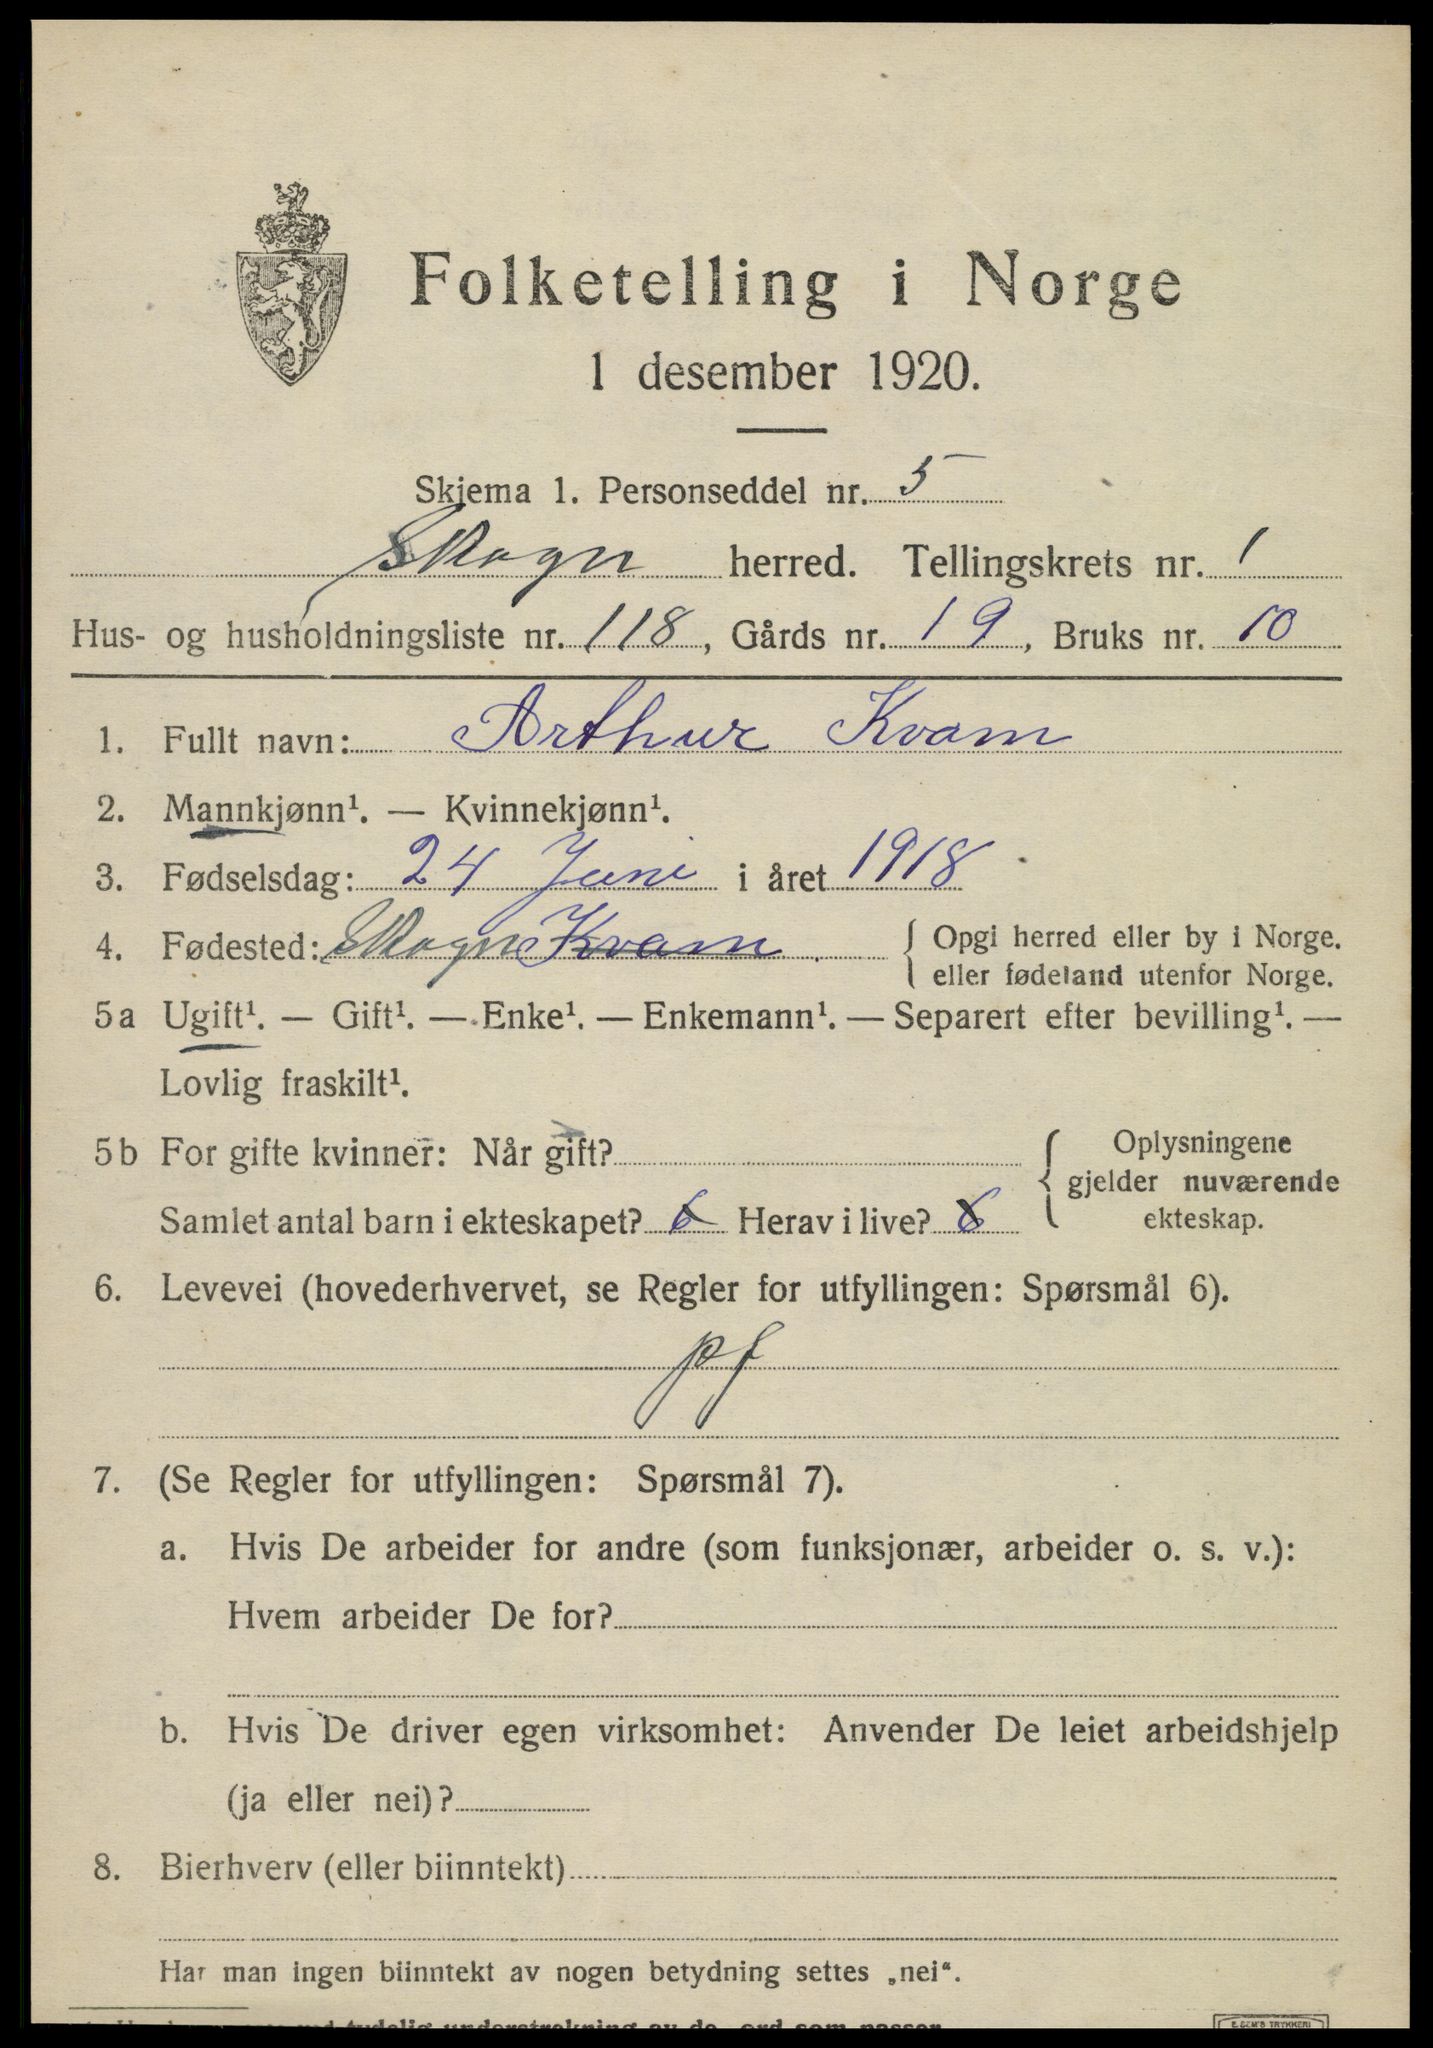 Folketelling i Norge
1 desember 1920.
Skjema 1. Personseddel nr. 5
Skogn herred. Tellingskrets nr. 1
Hus- og husholdningsliste nr. 118, Gårds nr. 19, Bruks nr. 10
1. Fullt navn: Arthur Kvam
2. Mannkjønn¹. — Kvinnekjønn¹.
3. Fødselsdag: 24 Juni i året 1918
4. Fødested: Skogn Kvam { Opgi herred eller by i Norge.
eller fødeland utenfor Norge.
5a Ugift¹. — Gift¹. — Enke¹. — Enkemann¹. — Separert efter bevilling¹. —
Lovlig fraskilt¹.
5b For gifte kvinner: Når gift? { Oplysningene
gjelder nuværende
Samlet antal barn i ekteskapet? 6 Herav i live? 6 ekteskap.
6. Levevei (hovederhvervet, se Regler for utfyllingen: Spørsmål 6).
pf
7. (Se Regler for utfyllingen: Spørsmål 7).
a. Hvis De arbeider for andre (som funksjonær, arbeider o. s. v.):
Hvem arbeider De for?
b. Hvis De driver egen virksomhet: Anvender De leiet arbeidshjelp
(ja eller nei)?
8. Bierhverv (eller biinntekt)
Har man ingen biinntekt av nogen betydning settes „nei“.